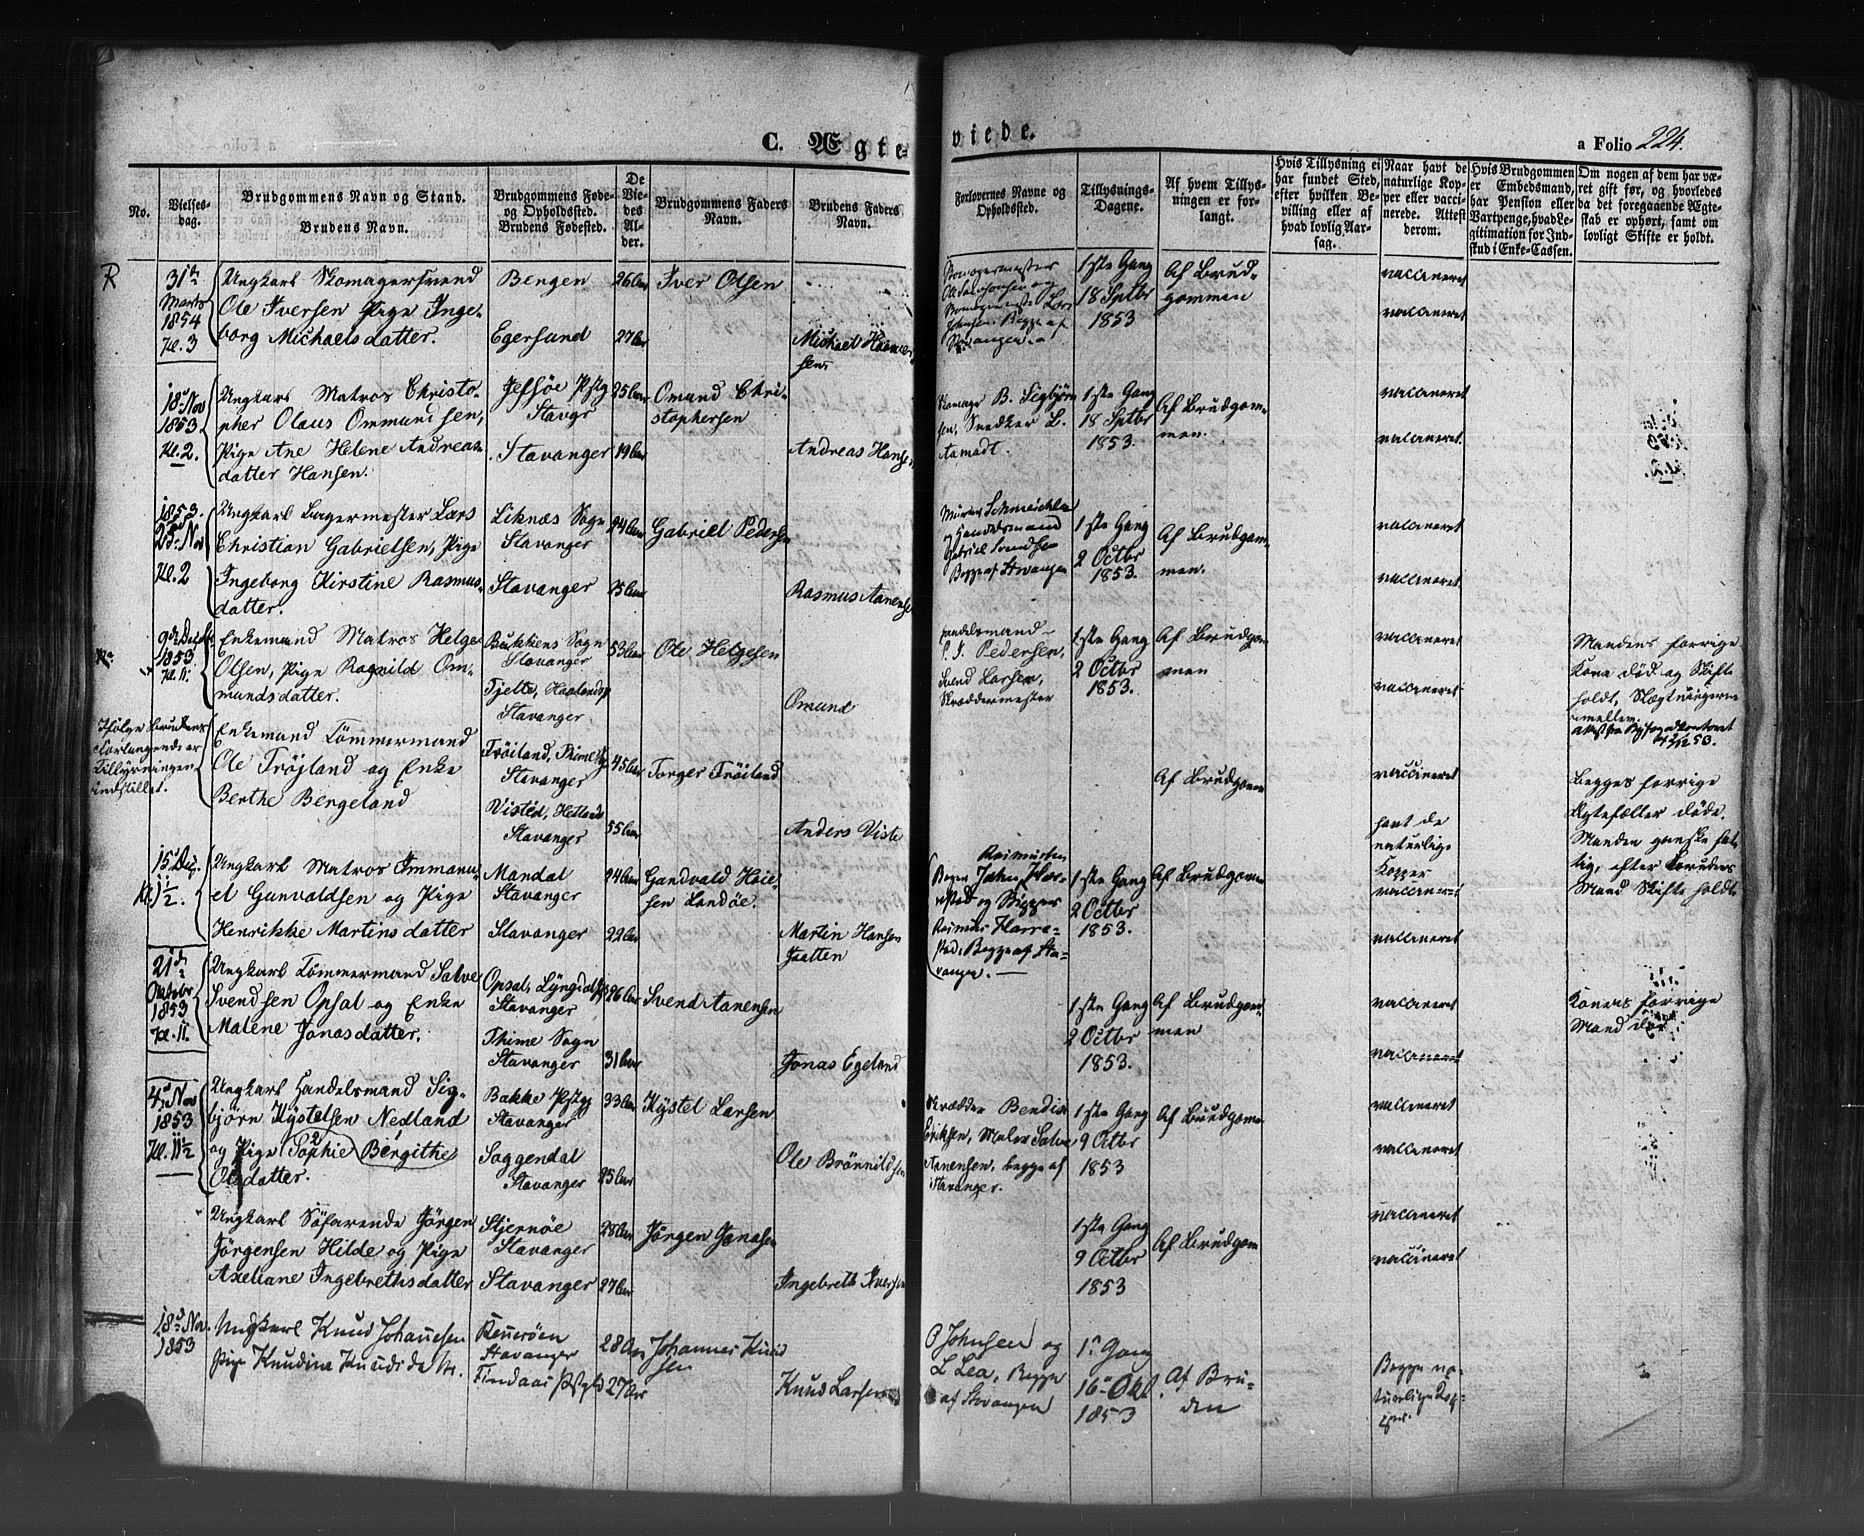 C. Ægte-
viede.
a Folio 224.
No.
Vielses-
dag.
Brudgommens Navn og Stand.
Brudens Navn.
Brudgommens Føde-
og Opholdssted.
Brudens Fødested.
De
Vie-
des
Al-
der.
Brudgommens Faders
Navn.
Brudens Faders
Navn.
Forlovernes Navne og
Opholdssted.
Tillysnings-
Dagene.
Af hvem Tillys-
ningen er for-
langt.
Hvis Tillysning ei
har fundet Sted,
efter hvilken Be-
villing eller af
hvad lovlig Aar-
sag.
Naar havt de
naturlige Kop-
per eller vacci-
nerede. Attest
derom.
Hvis Brudgommen
er Embedsmand,
har Pension eller
Vartpenge, hvad Le-
gitimation for Ind-
skud i Enke-Cassen.
Om nogen af dem har væ-
ret gift før, og hvorledes
da det foregaaende Ægte-
skab er ophørt, samt om
lovligt Skifte er holdt.
R
31te
Marts
1854
Kl. 3
Ungkarl Skomagersvend
Ole Iversen Pige Inge-
borg Michaelsdatter.
Bergen
Egersund
26 Aar
27 Aar
Iver Olsen
Michael
1ste Gang
18 Sptbr
1853
Af Brud-
gommen
vaccineret
vaccineret
18. Nov
1853
Kl. 2.
Ungkarl Matros Christo-
pher Olaus Ommundsen,
Pige Ane Helene Andreas-
datter Hansen.
Stavgr
Stavanger
25 Aar
19 Aar
Omund Chri-
stophersen
Andreas Hansen
1ste Gang
18 Sptbr
1853.
Af Brudgom-
men.
vaccineret
vaccineret.
1853.
25. Nov
Kl. 2
Ungkarl Bagermester Lars
Christian Gabrielsen, Pige
Ingeborg Kirstine Rasmus-
datter.
Liknæs Sogn
Stavanger
Stavanger
24 Aar
25 Aar
Gabriel Pedersen
Rasmus Aanensen
Gabriel Svendsen
Begge af Stavanger
1ste Gang
2 Octbr
1853.
Af Brudgom-
men.
vaccineret
vaccineret
9de Decbr
1853.
Kl. 11.
Enkemand Matros Helge
Olsen, Pige Ragnild Om-
mundsdatter.
Bukkens Sogn
Stavanger
Fjelte, Haalands
Stavanger
53 Aar
Ole Helgesen
Omund
Handelsmand
P. J. Pedersen,
Svend Larsen,
Skræddermester
1ste Gang
2 Octbr
1853.
Af Brudgom-
men
vaccineret
vaccineret
Mandens forrige
Kone død og Skifte
holdt, Slægtningerne
imellem
Ifølge Brudens
Forlangende er
Tillysningen
indstillet.
Enkemand Tømmermand
Ole Trøjland og Enke
Berthe Bergeland
Trøiland, Thime
Stavanger
Visted, Hetland
Stavanger
45 Aar
55 Aar
Torger Trøiland
Anders Viste
Af Brudgom
vaccineret
havt de
naturlige
Kopper
Begges forrige
Ægtefæller døde.
Manden ganske fat-
tig, efter Brudens
Mand Skifte holdt
Ungkarl Matros Immanu-
el Gunvaldsen og Pige
Henrikke Martinsdatter
Mandal
Stavanger
Stavanger
24 Aar
22 Aar
Martin Hansen
1ste Gang
2 Octbr
1853.
Af Brudgom
vaccineret
vaccineret
21de
Octobr
1853
Kl. 11.
Ungkarl Tømmermand Salve
Svendsen Opsal og Enke
Malene Jonasdatter.
Opsal, Lyngdal
Stavanger
Thime Sogn
Stavanger
26 Aar
31 Aar
Svend Aanensen
Jonas Egeland
1ste Gang
2 Octbr
1853.
Af Brudgom-
men
vaccineret
vaccineret
Konens forrige
Mand død
4de Nov
1853
Kl. 11½
Ungkarl Handelsmand Sig-
bjørn Kystelsen Nedland
og Pige Sophie Bergithe
Olsdatter.
Bakke Pstg
Stavanger
Soggendal
Stavanger
33 Aar
25 Aar
Kystel Larsen
Ole Brønnildsen
Skrædder Bendix
Eriksen, Maler Salve
Aanensen, begge af
Stavanger.
1ste Gang
9 Octbr
1853
Af Brudgom
vaccineret
vaccineret
Ungkarl Søfarende Jørgen
Jørgensen Hilde og Pige
Axeliane Ingebrethsdatter
Stjernøe
Stavanger
Stavanger
28 Aar
27 Aar
Jørgen Jonasen
Ingebreth Iversen
1ste Gang
9 Octbr
1853
Af Brudgom
vaccineret
vaccineret
18. Nov.
1853
Ungkarl Knud Johannesen
Pige Knudina Knudsdatter
Rennesøen
Stavanger
Findaas Pstgld
28 Aar
27 Aar
Johannes Knud
sen
Knud Larsen
O Johnsen og
L Lea, Begge
af Stavanger
1. Gang
16. Okt.
1853
Af Bru-
den
Begge na-
turlige Kop-
per.